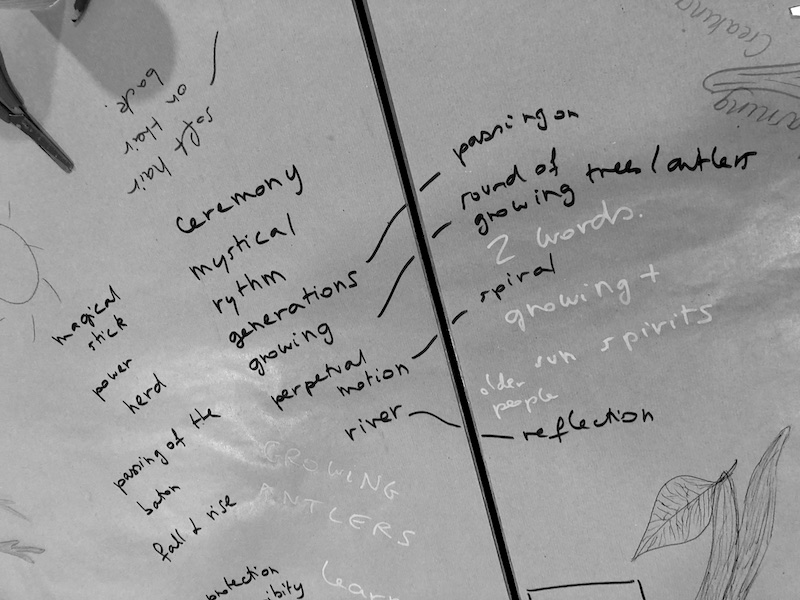 soft hair
on Hair
back.
ceremony
mystical
rythm
generations
growing
perpetual
motion
river
magical
stick
power
herd
passing of the
baton
fall & rise
GROWING
ANTLERS
protection
passing on
round of
growing trees / antlers
2 words.
spiral
growing +
sun spirits
older
people
reflection
Creating